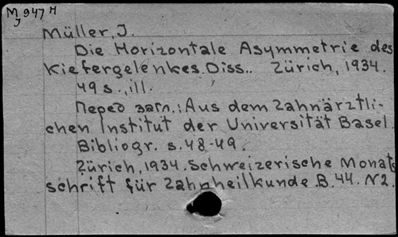 M 947 H
J
Müller, J.
Die Horizontale Asymmetrie des
Kiefergelenkes. Diss.. Zürich, 1934.
49 s., ill.
Перед загл.: Aus dem Zahnärztli-
chen Institut der Universität Basel.
Bibliogr. s. 48-49.
Zürich, 1934. Schweizerische Monats
schrift für Zahnheilkunde. B. 44. N2.